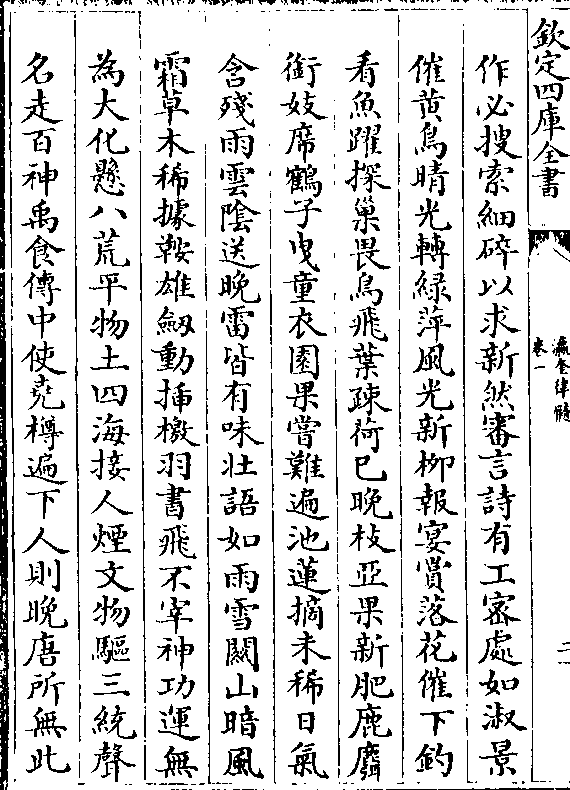 欽定四庫全書
瀛奎律髓
卷一
二
作必搜索細碎以求新然審言詩有工密處如淑景
催黄鳥晴光轉緑萍風光新柳報宴賞落花催下釣
看魚躍探巢畏鳥飛葉疎荷已晚枝亞果新肥鹿麛
銜妓席鶴子曳童衣園果嘗難遍池蓮摘未稀日氣
含殘雨雲陰送晚雷皆有味壯語如雨雪關山暗風
霜草木稀據鞍雄劔動揷檄羽書飛不宰神功運無
為大化懸八荒平物土四海接人煙文物驅三統聲
名走百神禹食傳中使堯樽遍下人則晚唐所無此